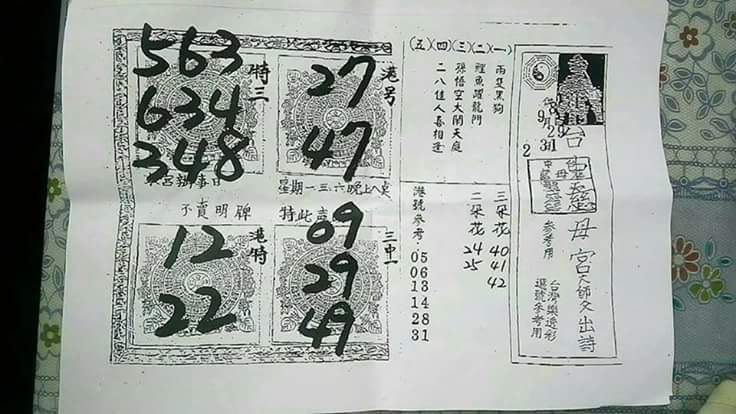 563
634
348
特三
27
47
港号
星期一三六晚上八点
不賣明牌
特此
12
22
港特
09
29
49
三中一
(五)(四)(三)(二)(一)
兩隻黑狗
鯉魚躍龍門
孫悟空大鬧天庭
二八佳人喜相逢
三朵花 40 41 42
二朵花 24 25
港號參考 05 06 13 14 28 31
母宮
出詩
參考用
台灣樂透彩
選號參考用